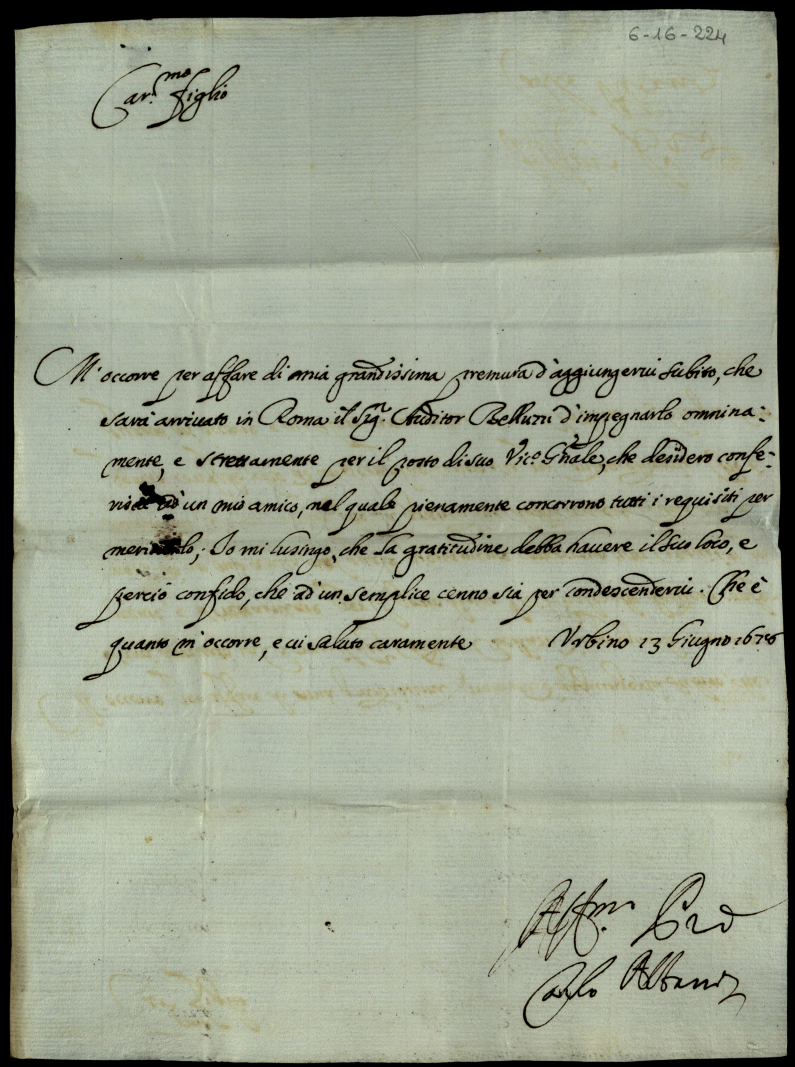 6-16-224
Car.mo figlio
M'occorre per affare di mia grandissima premura d'aggiungerui subito, che
sarà arriuato in Roma il Sig.r Auditor Belluzzi d'impegnarlo omnina-
mente, e strettamente per il posto di suo Vic.o Gñale, che desidero confe-
risca ad un mio amico, nel quale pienamente concorrono tutti i requisiti per
meritarlo; Io mi lusingo, che la gratitudine debba hauere il suo loco, e
perciò confido, che ad un semplice cenno sia per condescenderui. Che è
quanto m'occorre, e ui saluto caramente Urbino 13 Giugno
Aff.mo
Carlo Albani